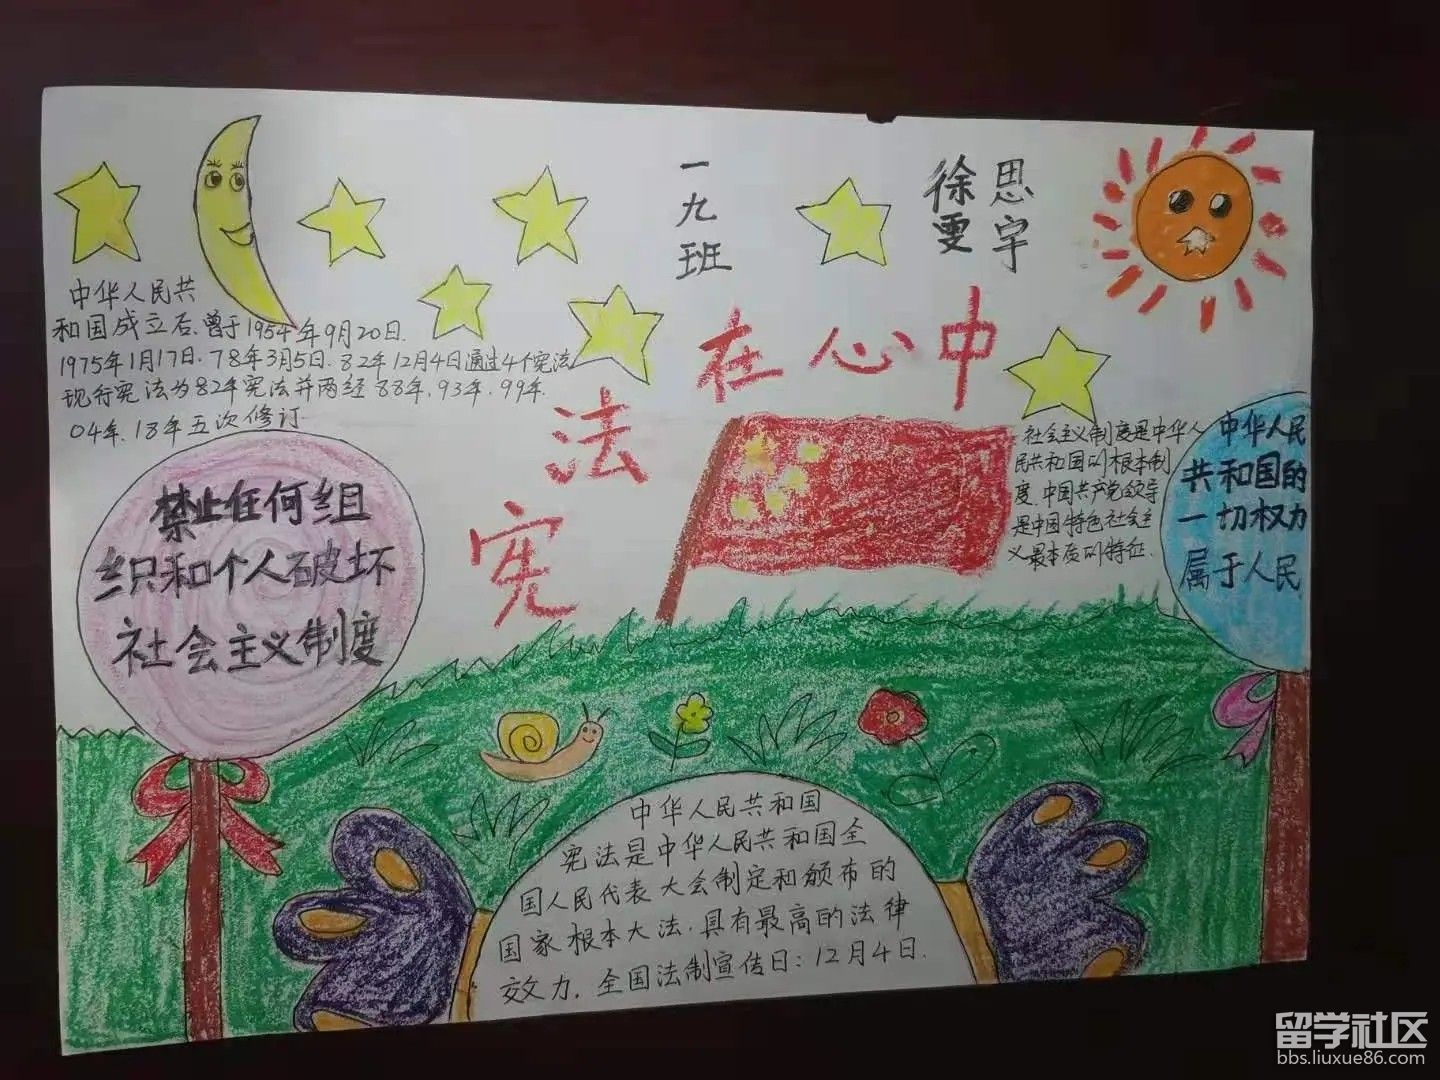 一九班
徐思
雯宇
宪法在心中
中华人民共
和国成立后.曾于1954年9月20日.
1975年1月17日.78年3月5日.82年12月4日通过4个宪法
现行宪法为82年宪法并两经88年.93年.99年.
04年.18年五次修订
禁止任何组
织和个人破坏
社会主义制度
社会主义制度是中华人
民共和国的根本制
度.中国共产党领导
是中国特色社会主
义最本质的特征.
中华人民
共和国的
一切权力
属于人民
中华人民共和国
宪法是中华人民共和国全
国人民代表大会制定和颁布的
国家根本大法.具有最高的法律
效力.全国法制宣传日:12月4日.
留学社区
bbs.liuxue86.com